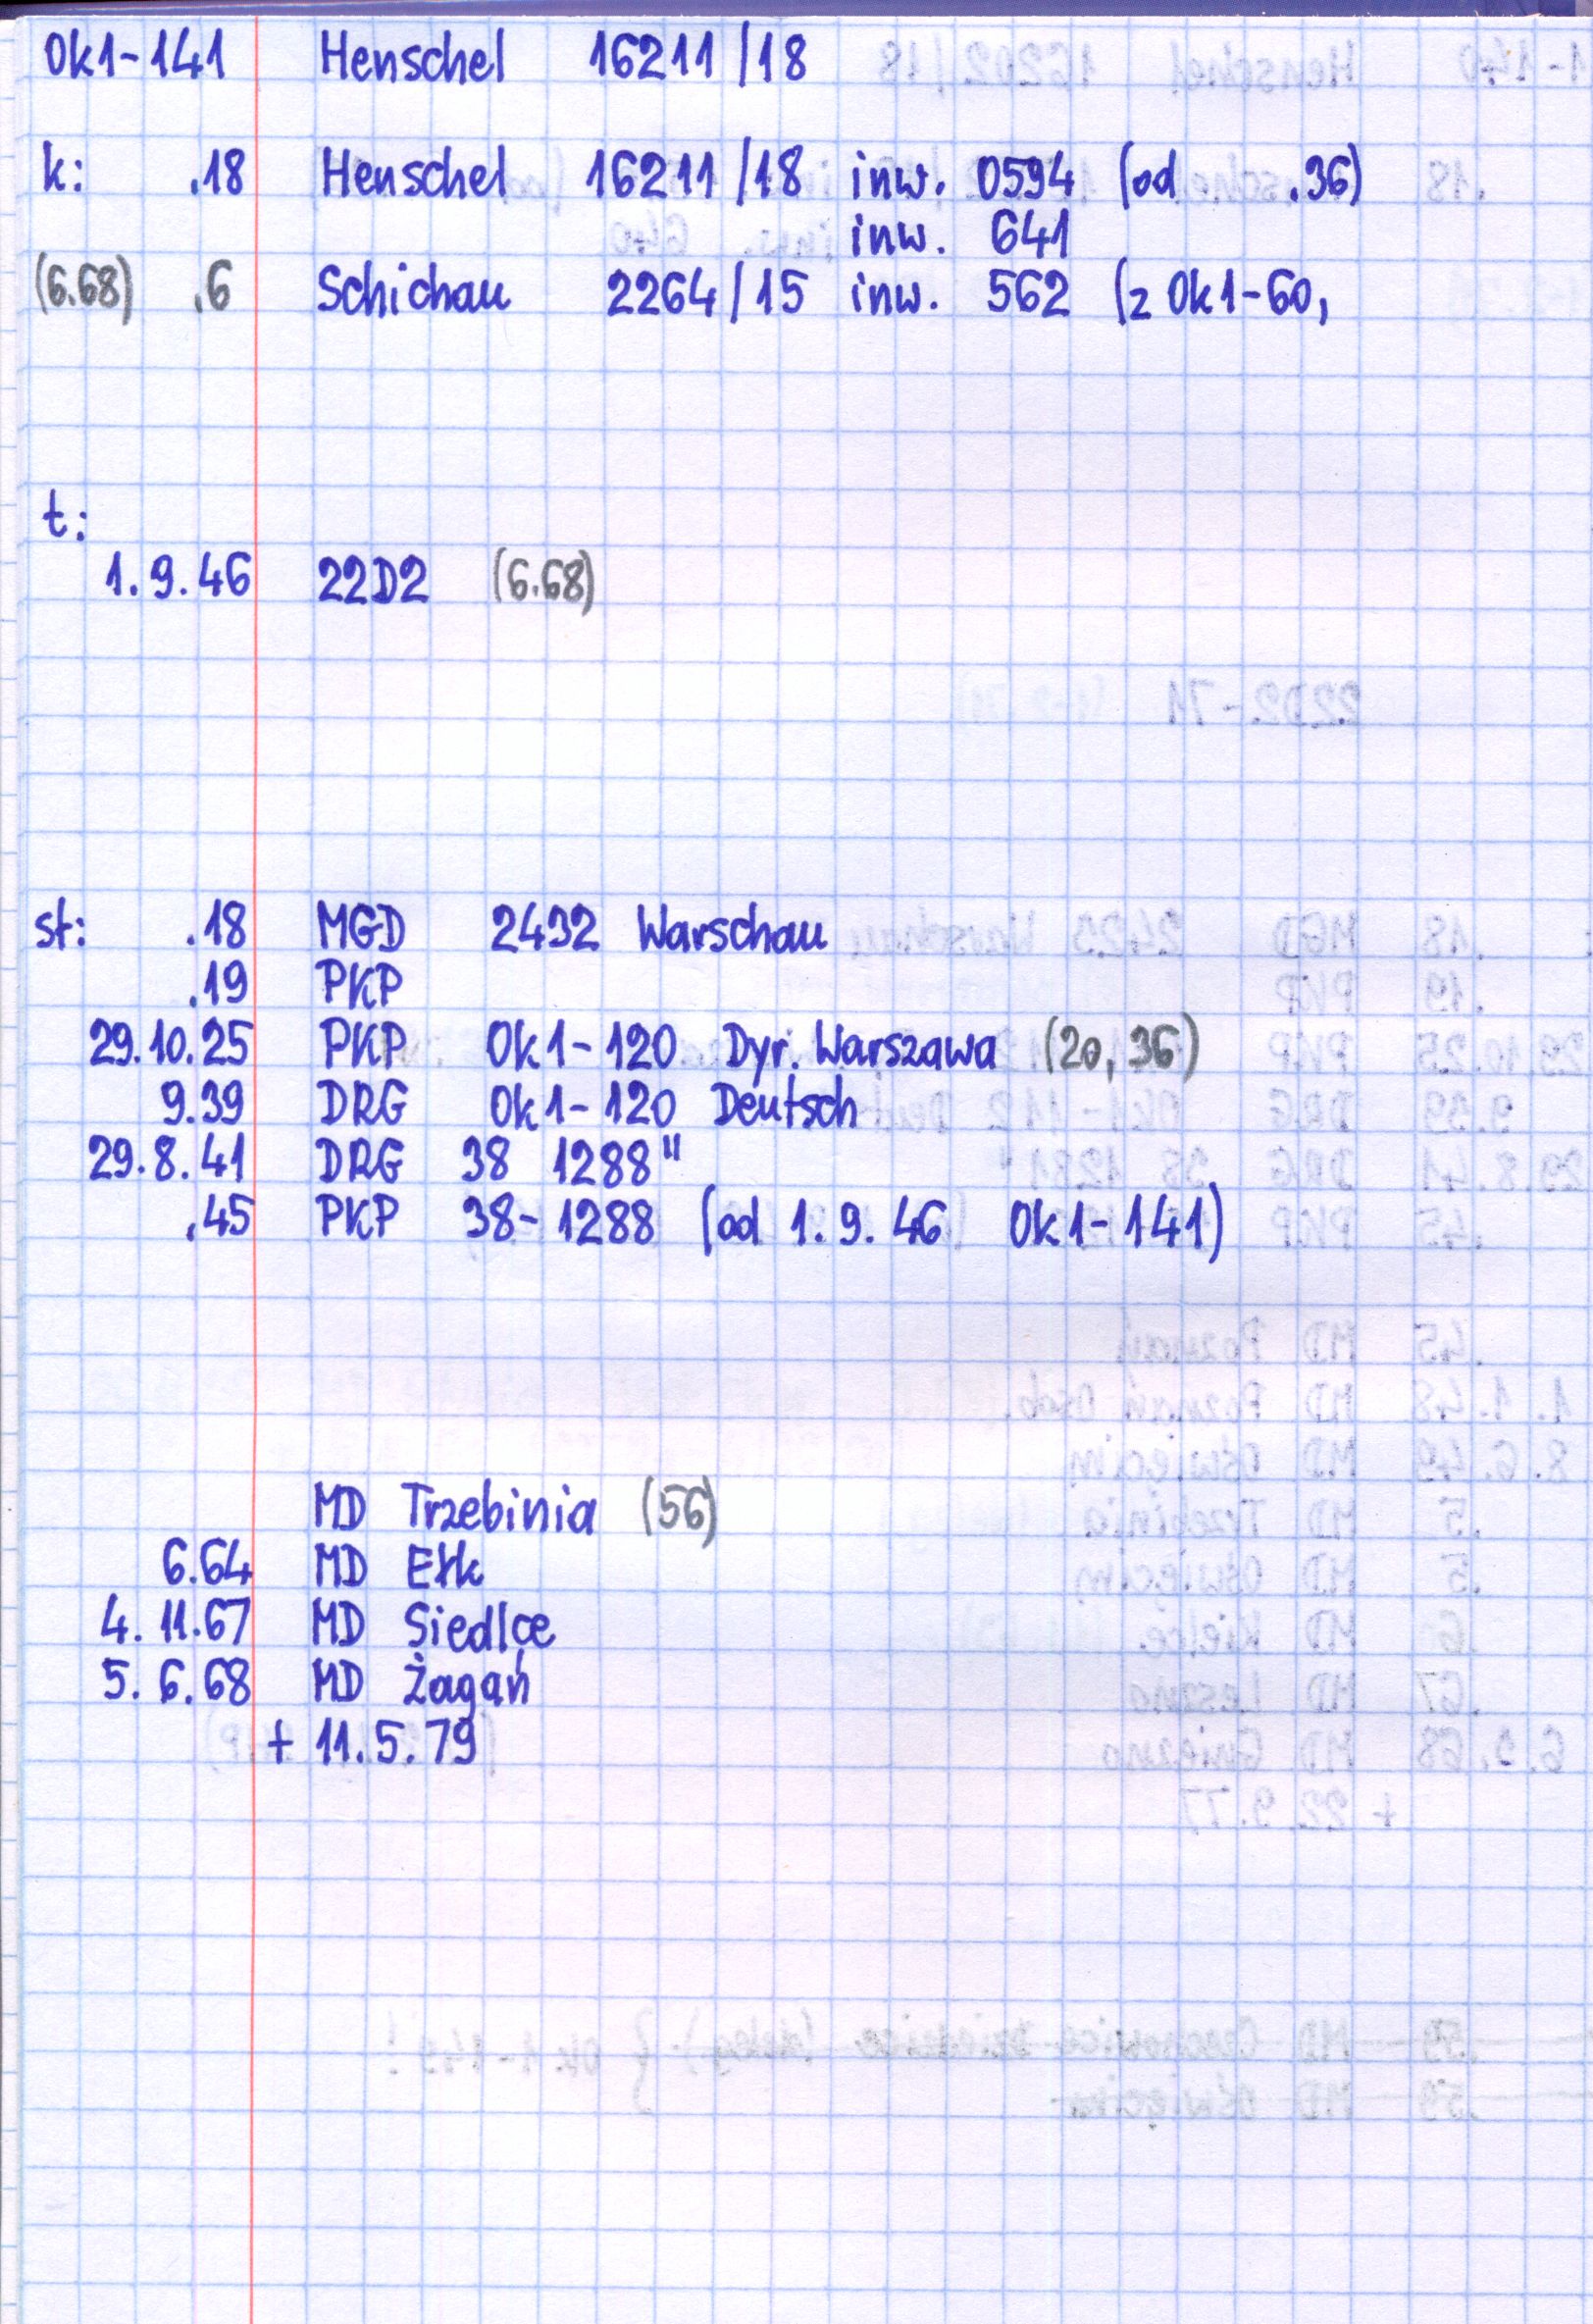 Ok1-141 Henschel 16211/18
k: .18 Henschel 16211/18 inw. 0594 (od .36)
inw. 641
(6.68) .6 Schichau 2264/15 inw. 562 (z Ok1-60,
t:
1.9.46 22D2 (6.68)
st: .18 MGD 2432 Warschau
.19 PKP
29.10.25 PKP Ok1-120 Dyr. Warszawa (20, 36)
9.39 DRG Ok1-120 Deutsch
29.8.41 DRG 38 1288"
.45 PKP 38-1288 (od 1.9.46 Ok1-141)
MD Trzebinia (56)
6.64 MD Ełk
4.11.67 MD Siedlce
5.6.68 MD Żagań
+ 11.5.79